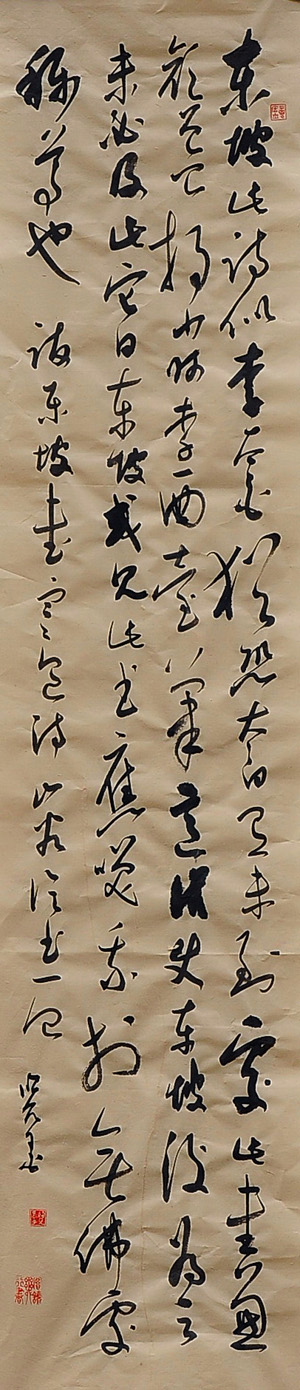 東坡此詩似李太白猶恐太白有未到處此書兼
顏魯公楊少師李西臺筆意試使東坡復為之
未必及此它日東坡或見此書應笑我於無佛處
稱尊也 東坡書寒食詩山谷